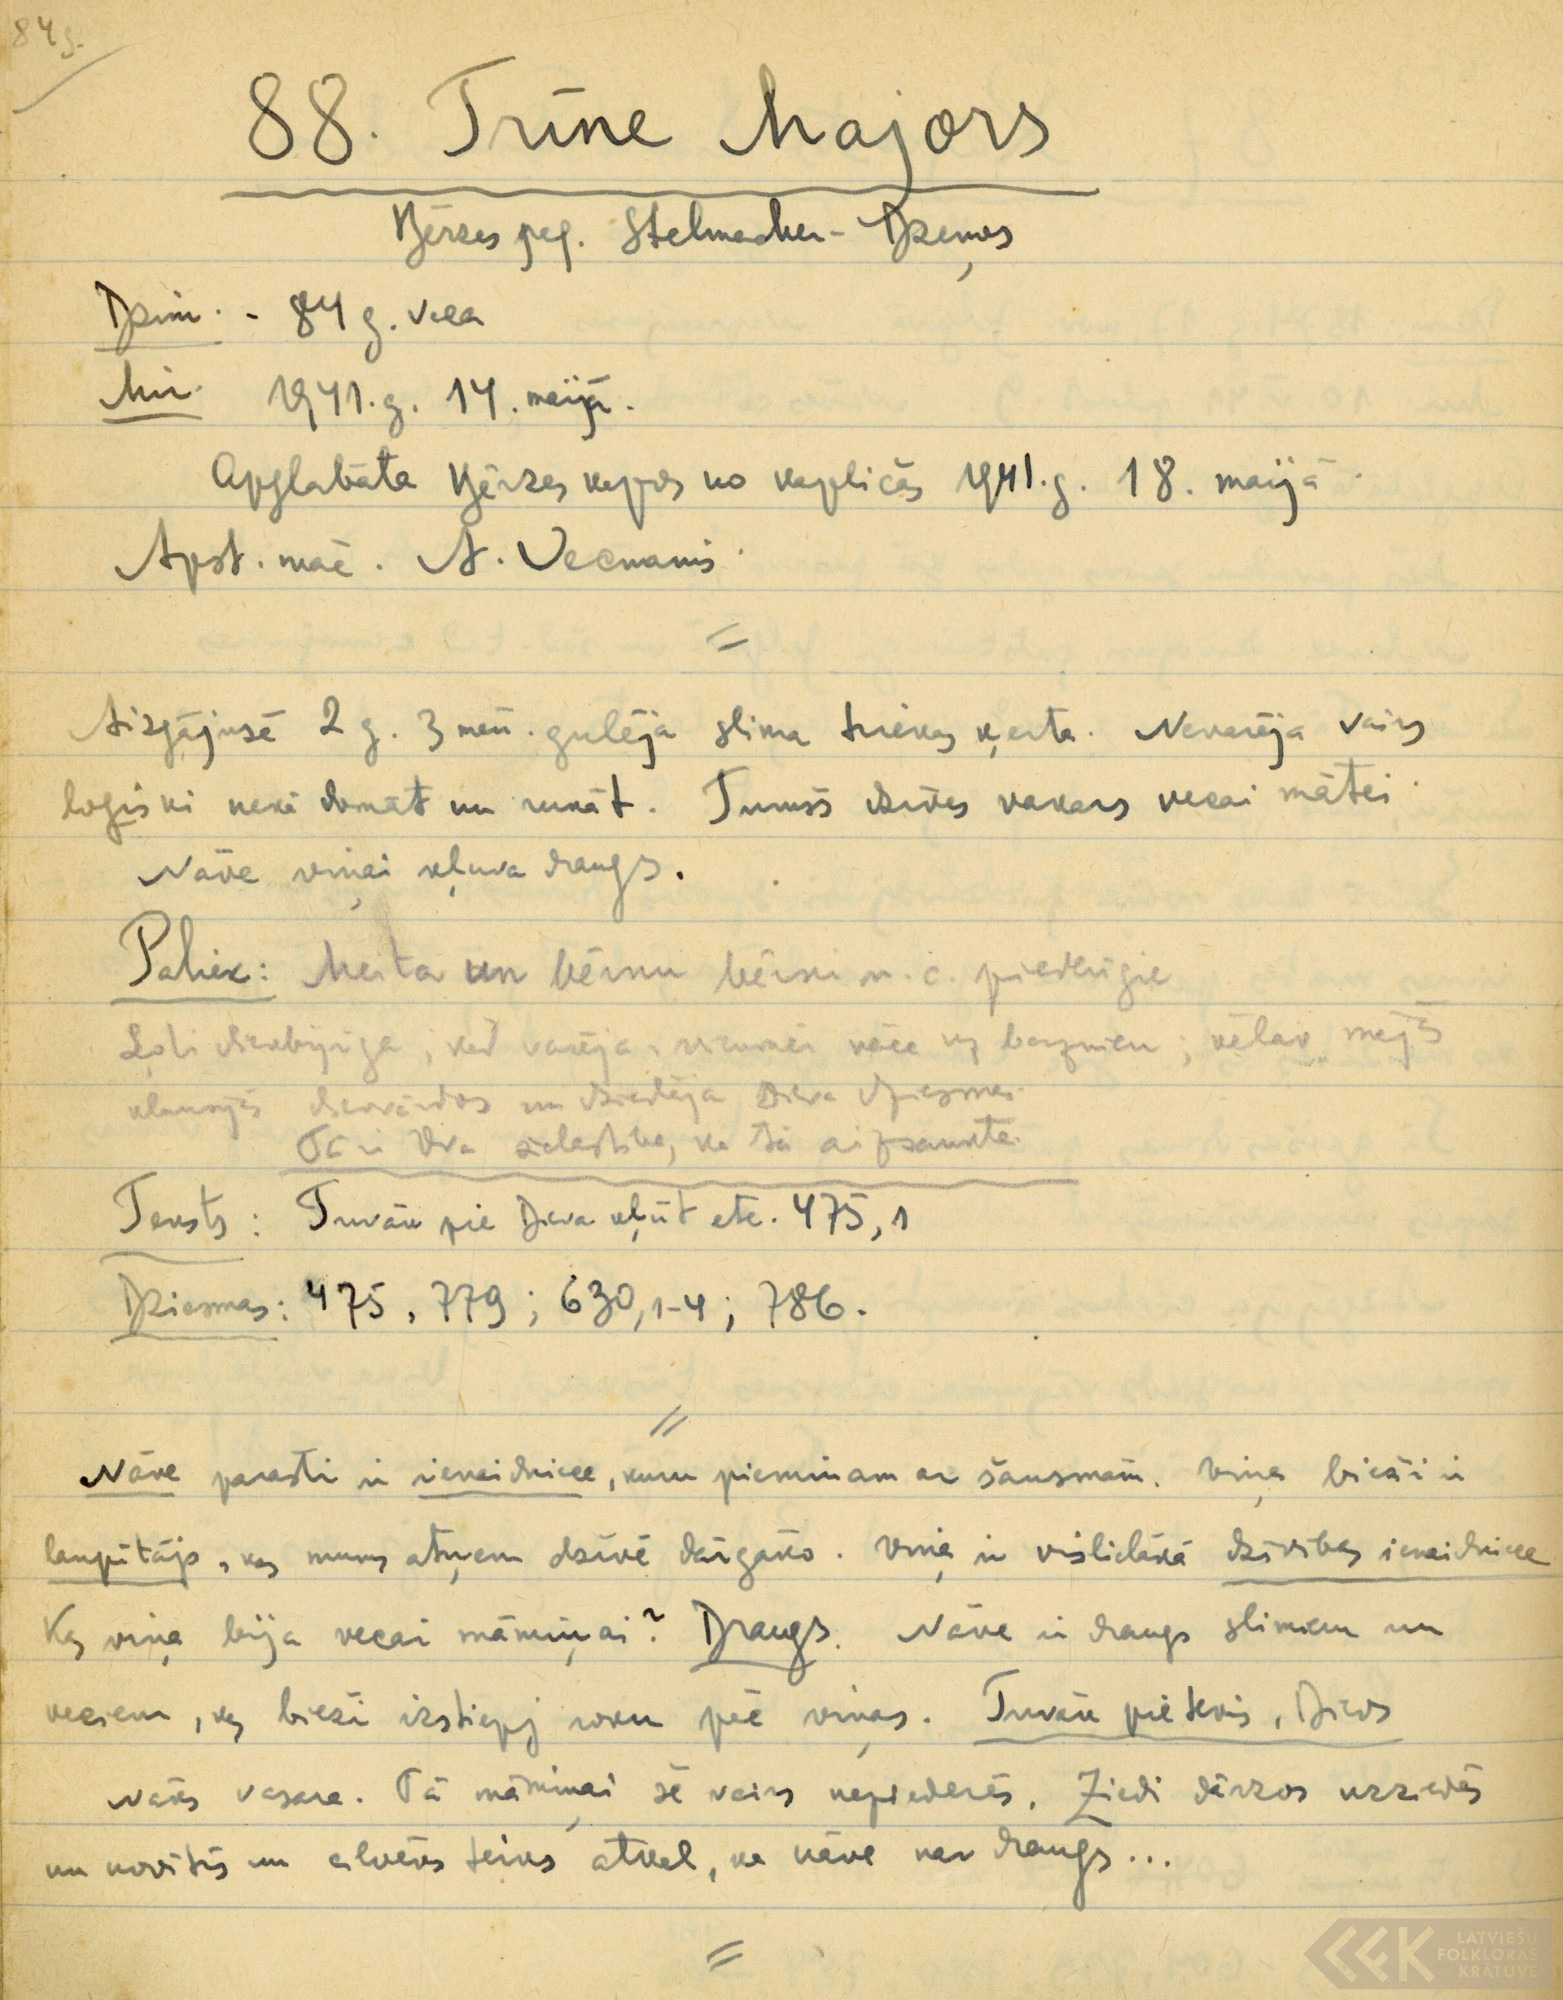 84 g.
88. Trīne Majors
Bērzes pag. Stelmacher-Dzeņos
Dzim. - 84 g. veca
Mir. 1941. g. 14. maijā.
Apglabāta Bērzes kapos no kapličas 1941. g. 18. maijā.
Apst. māc. A. Vecmanis.
=
Aizgājusē 2 g. 3 mēn. gulēja slima triekas ķerta. Nevarēja vairs
loģiski nekā domāt un runāt. Tumšs dzīves vakars vecai mātei.
Nāve viņai kļuva draugs.
Paliek: Meita un bērnu bērni u. c. piederīgie
Ļoti dievbijīga, kad varēja, vienmēr nāca uz baznīcu; vēlāk mājās
klausījās dievvārdos un dziedāja Dieva dziesmas.
Tā ir Dva žēlastība, ka tā aizsaukta.
Teksts: Tuvāk pie Dieva kļūt etc. 475,1
Dziesmas: 475, 779; 630,1-4; 786.
=
Nāve parasti ir ienaidniece, kuru pieminam ar šausmām. Viņa bieži ir
laupītājs, kas mums atņem dzīvē dārgāko. Viņa ir vislielākā dzīvības ienaidniece
Kas viņa bija vecai māmiņai? Draugs. Nāve ir draugs slimiem un
veciem, kas bieži izstiepj roku pēc viņas. Tuvāk pie tevis, Dievs
Nāks vasara. Tā māmiņai šē vairs nepiederēs. Ziedi dārzos uzziedēs
un novītīs un cilvēks teiks atkal, ka nāve nav draugs...
=
LATVIEŠU
FOLKLORAS
KRĀTUVE